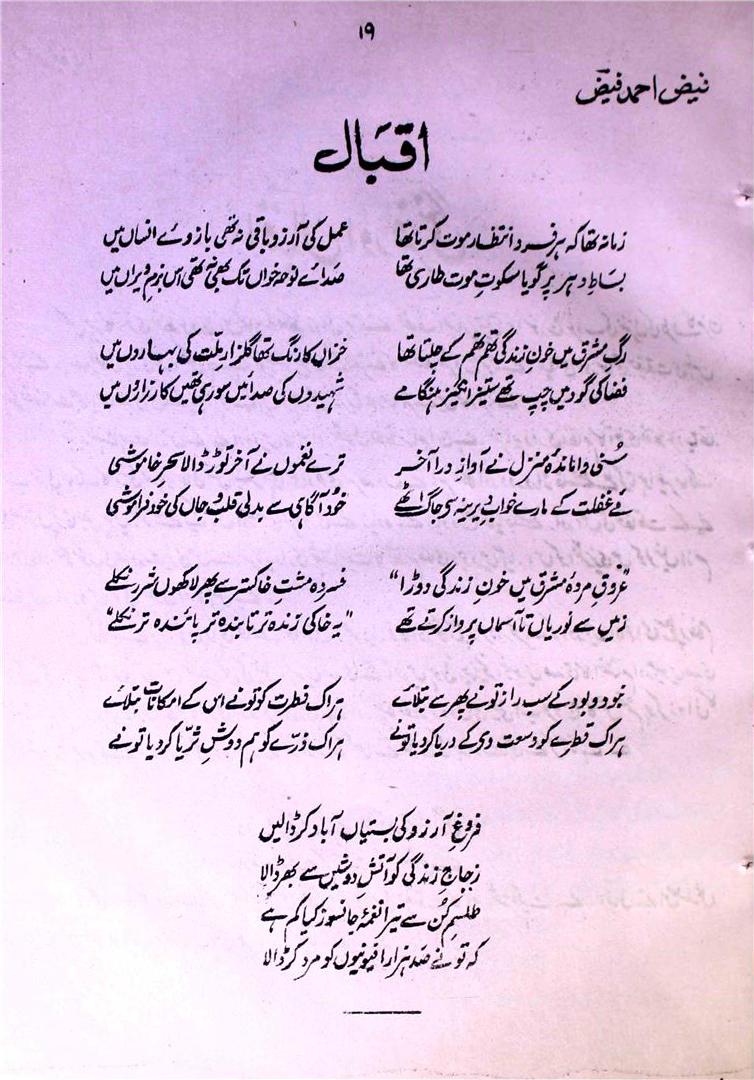 ۱۹
فیض احمد فیضؔ
اقبال
زمانہ تھا کہ ہر فرد انتظار موت کرتا تھا عمل کی آرزو باقی نہ تھی بازوئے انساں میں
بساطِ دہر پر گویا سکوتِ موت طاری تھا صدائے نوحہ خواں تک بھی نہ تھی اس بزمِ ویراں میں
رگِ مشرق میں خونِ زندگی تھم تھم کے چلتا تھا خزاں کا رنگ تھا گلزارِ ملت کی بہاروں میں
فضا کی گود میں چپ تھے ستیز انگیز ہنگامے شہیدوں کی صدائیں سو رہی تھیں کارزاروں میں
سُنی واماندۂ منزل نے آوازِ درا آخر ترے نغموں نے آخر توڑ ڈالا سحرِ خاموشی
مۓ غفلت کے مارے خوابِ دیرینہ سے جاگ اٹھے خود آگاہی سے بدلی قلب و جاں کی خود فراموشی
"عروقِ مردۂ مشرق میں خونِ زندگی دوڑا" فسردہ مشتِ خاکستر سے پھر لاکھوں شرر نکلے
زمیں سے نوریاں تا آسماں پرواز کرتے تھے "یہ خاکی زندہ تر تابندہ تر پائندہ تر نکلے"
نبود و بود کے سب راز تو نے پھر سے بتلائے ہر اک فطرت کو تو نے اس کے امکانات بتلائے
ہر اک قطرے کو وسعت دی کے دریا کر دیا تو نے ہر اک ذرے کو ہم دوشِ ثریا کر دیا تو نے
فروغِ آرزو کی بستیاں آباد کر ڈالیں
زجاجِ زندگی کو آتشِ دوشیں سے بھر ڈالا
طلسمِ کن سے تیرا نغمۂ جانسوز کیا کم ہے
کہ تو نے صد ہزار افیونیوں کو مرد کر ڈالا